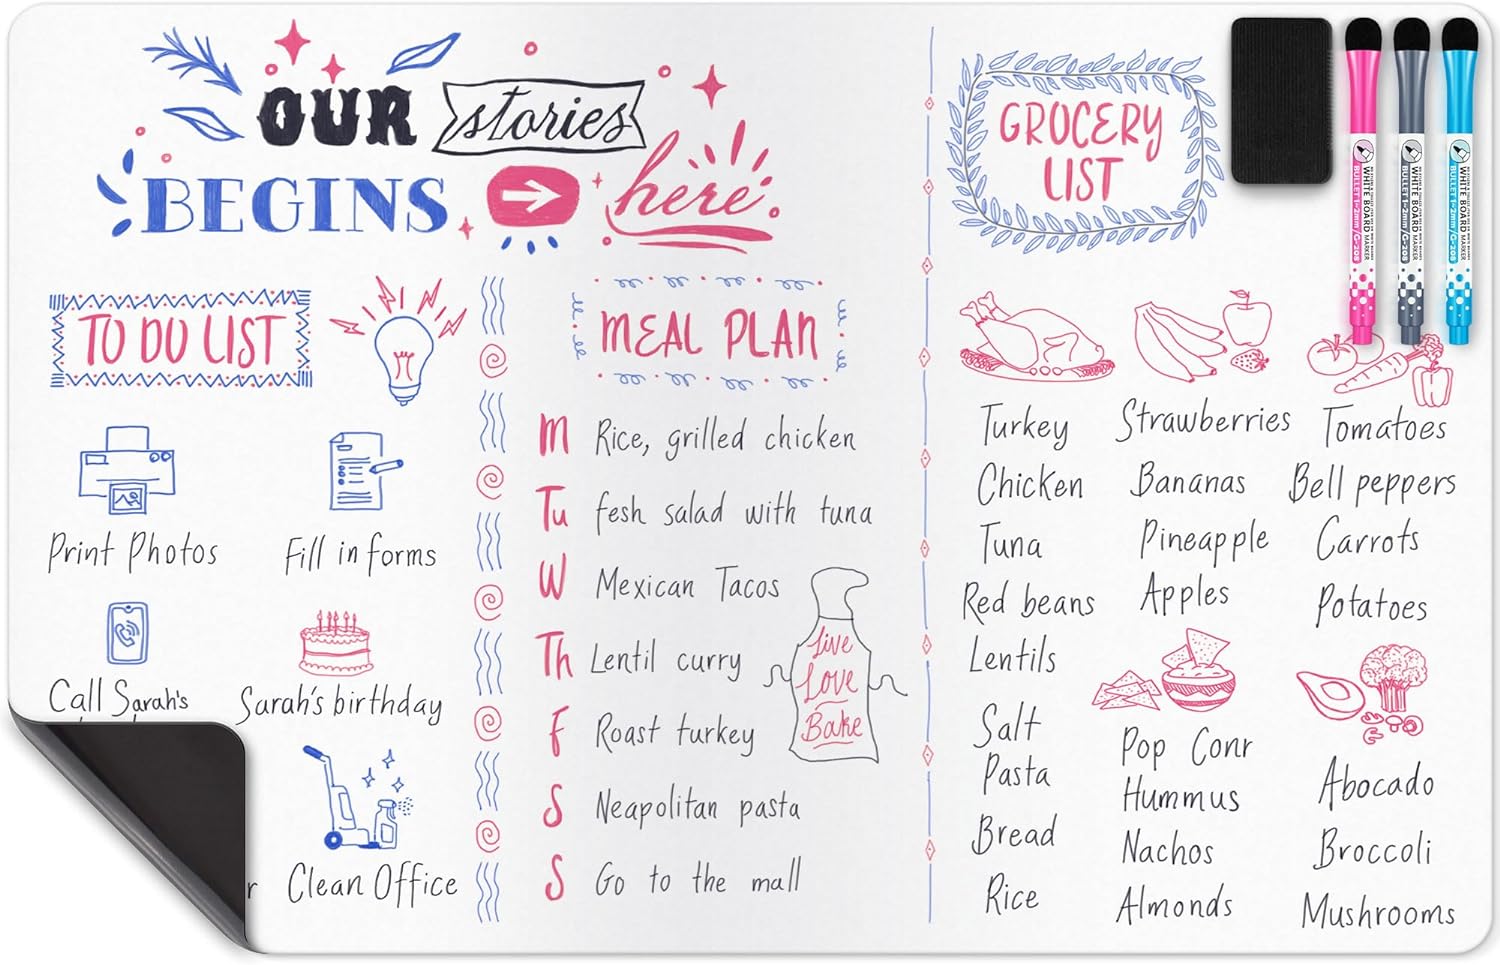 OUR stories
BEGINS here
TO DO LIST
Print Photos
Fill in forms
Call Sarah's
Sarah's birthday
r
Clean Office
MEAL PLAN
M Rice, grilled chicken
Tu fesh salad with tuna
W Mexican Tacos
Th Lentil curry
F Roast turkey
S Neapolitan pasta
S Go to the mall
Live
Love
Bake
GROCERY
LIST
Turkey
Chicken
Tuna
Red beans
Lentils
Salt
Pasta
Bread
Rice
Strawberries
Bananas
Pineapple
Apples
Pop Conr
Hummus
Nachos
Almonds
Tomatoes
Bell peppers
Carrots
Potatoes
Abocado
Broccoli
Mushrooms
WHITE BOARD MARKER
BULLET 1-2mm/G-208
WHITE BOARD MARKER
BULLET 1-2mm/G-208
WHITE BOARD MARKER
BULLET 1-2mm/G-208